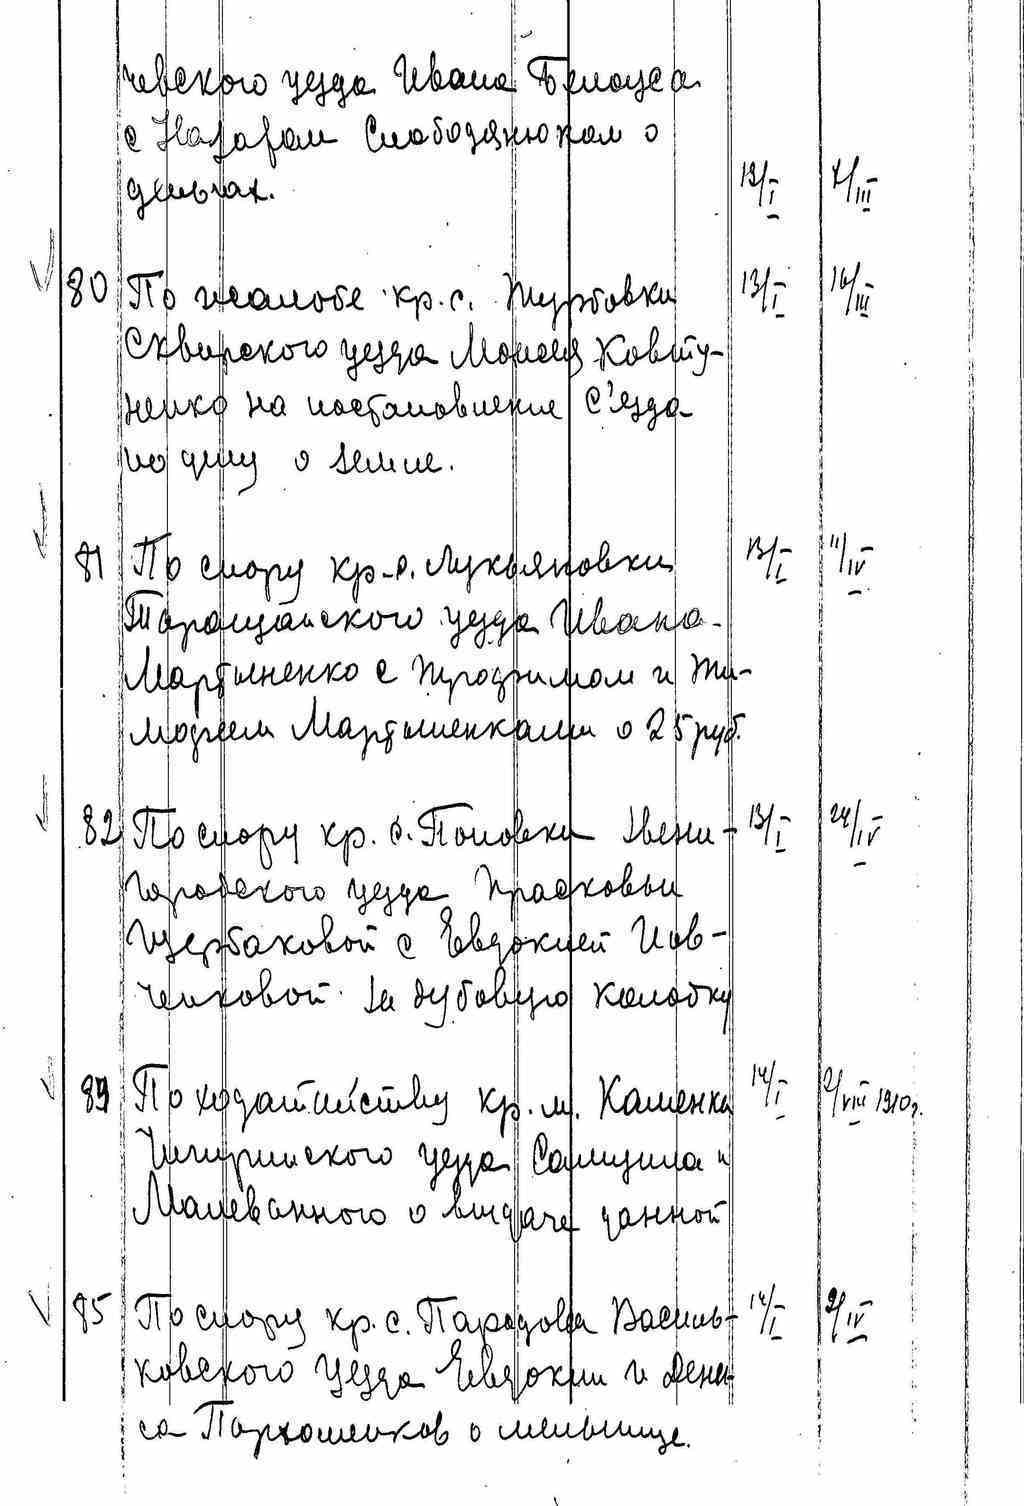 чевского уезда Ивана Белоуса
с Назаром Слободянюком о
деньгах. 12/I 7/III
80 По жалобе кр. с. Журбовки 13/I 16/III
Сквирского уезда Моисея Ковту-
ненко на постановление С'езда
по делу о земле.
81 По спору кр. с. Лукьяновки 13/I 11/IV
Таращанского уезда Ивана
Мартыненко с Трофимом и Ти-
мофеем Мартыненками о 25 руб.
82 По спору кр. с. Поповки Звени- 13/I 24/IV
городского уезда Прасковьи
Щербаковой с Евдокией Иов-
ченковой за дубовую колодку
84 По ходатайству кр. м. Каменки 14/I 2/VIII 1910г.
Чигиринского уезда Самуила
Малеванного о выдаче данной
85 По спору кр. с. Парадова Василь- 14/I 2/IV
ковского уезда Евдокии и Дени-
са Пархоменков о мельнице.